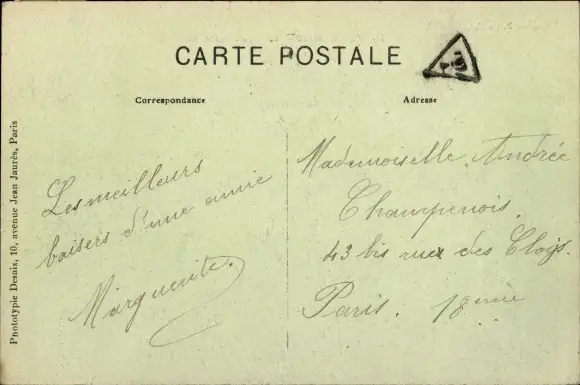 CARTE POSTALE
Correspondance
Adresse
Phototypie Desaix, 10, avenue Jean Jaurès, Paris
Les meilleurs
baisers d'une amie
Marguerite.
Mademoiselle Andrée
Champenois.
43 bis rue des Cloys.
Paris. 18eme